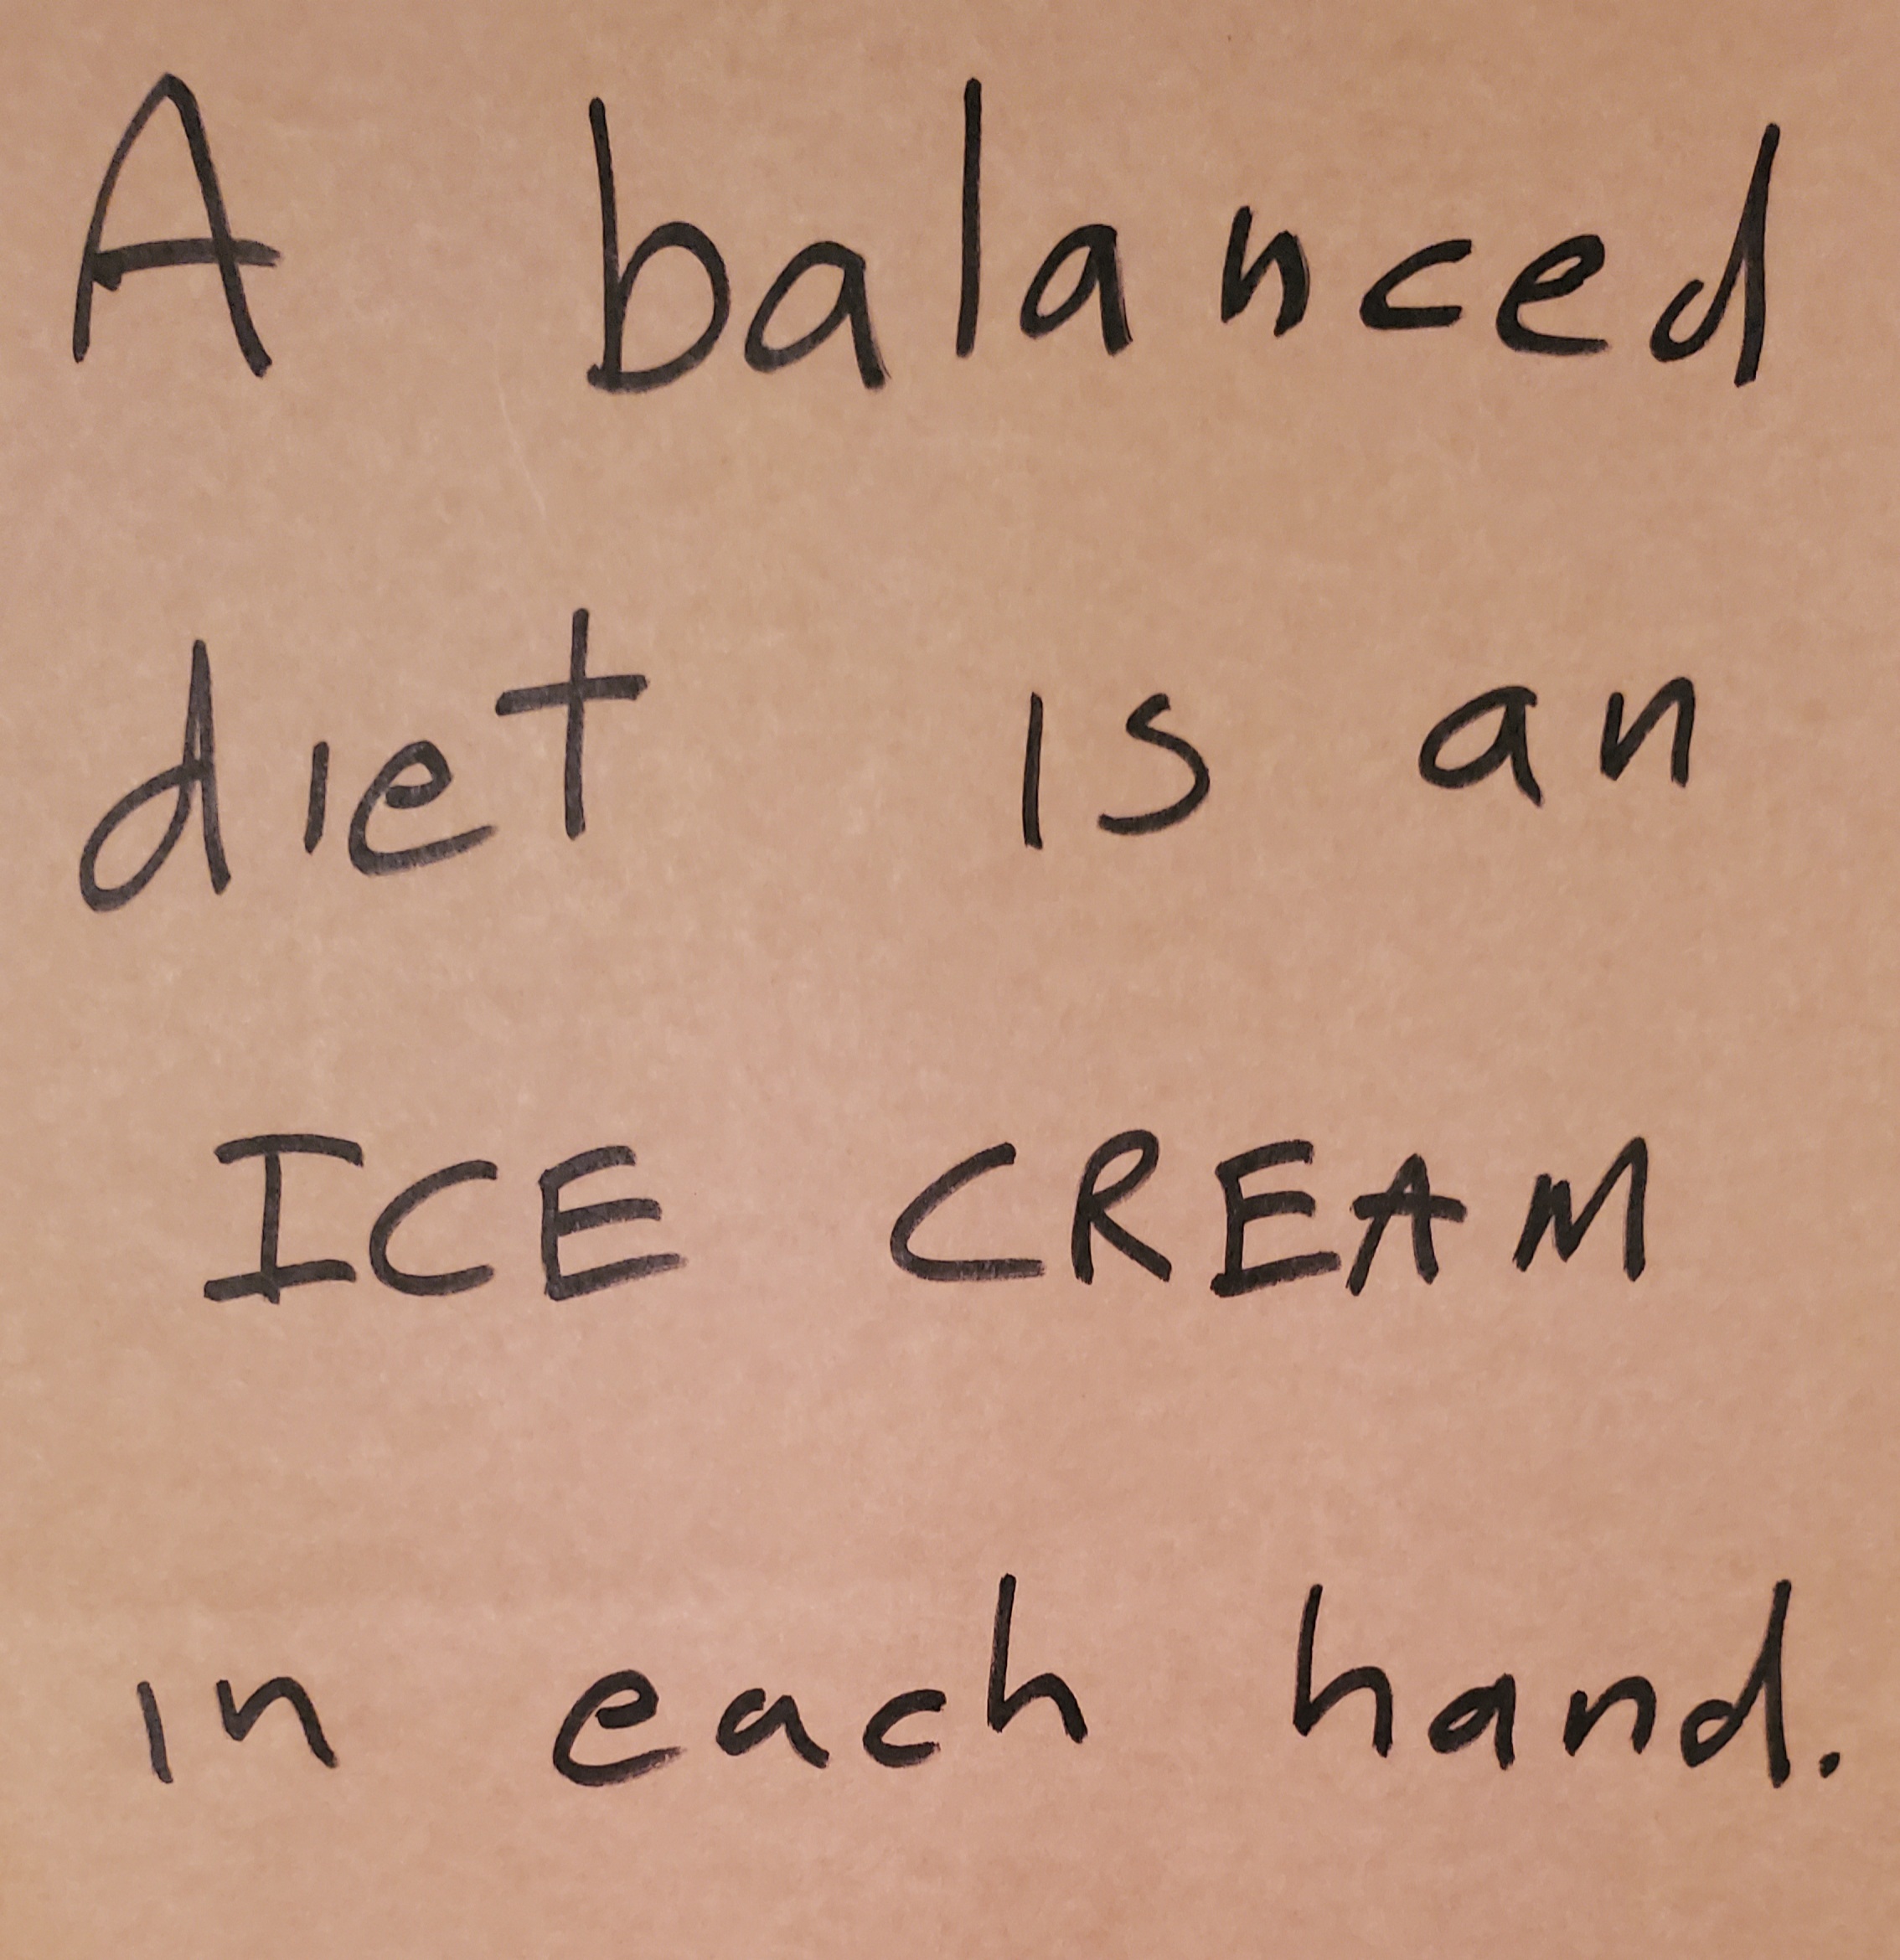 A balanced
diet is an
ICE CREAM
in each hand.